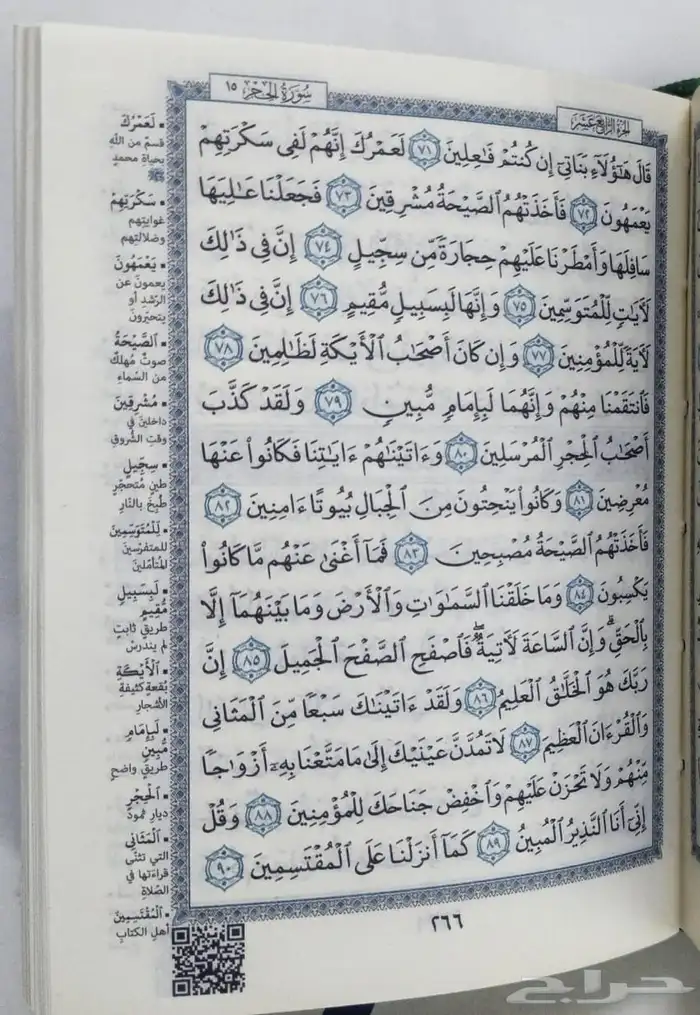 سُورَةُ الحِجْرِ ١٥
الجزء الرابع عشر
قَالَ هَٰٓؤُلَآءِ بَنَاتِىٓ إِن كُنتُمْ فَٰعِلِينَ ٧١ لَعَمْرُكَ إِنَّهُمْ لَفِى سَكْرَتِهِمْ
يَعْمَهُونَ ٧٢ فَأَخَذَتْهُمُ ٱلصَّيْحَةُ مُشْرِقِينَ ٧٣ فَجَعَلْنَا عَٰلِيَهَا
سَافِلَهَا وَأَمْطَرْنَا عَلَيْهِمْ حِجَارَةً مِّن سِجِّيلٍ ٧٤ إِنَّ فِى ذَٰلِكَ
لَءَايَٰتٍ لِّلْمُتَوَسِّمِينَ ٧٥ وَإِنَّهَا لَبِسَبِيلٍ مُّقِيمٍ ٧٦ إِنَّ فِى ذَٰلِكَ
لَءَايَةً لِّلْمُؤْمِنِينَ ٧٧ وَإِن كَانَ أَصْحَٰبُ ٱلْأَيْكَةِ لَظَٰلِمِينَ ٧٨
فَٱنتَقَمْنَا مِنْهُمْ وَإِنَّهُمَا لَبِإِمَامٍ مُّبِينٍ ٧٩ وَلَقَدْ كَذَّبَ
أَصْحَٰبُ ٱلْحِجْرِ ٱلْمُرْسَلِينَ ٨٠ وَءَاتَيْنَٰهُمْ ءَايَٰتِنَا فَكَانُوا۟ عَنْهَا
مُعْرِضِينَ ٨١ وَكَانُوا۟ يَنْحِتُونَ مِنَ ٱلْجِبَالِ بُيُوتًا ءَامِنِينَ ٨٢
فَأَخَذَتْهُمُ ٱلصَّيْحَةُ مُصْبِحِينَ ٨٣ فَمَآ أَغْنَىٰ عَنْهُم مَّا كَانُوا۟
يَكْسِبُونَ ٨٤ وَمَا خَلَقْنَا ٱلسَّمَٰوَٰتِ وَٱلْأَرْضَ وَمَا بَيْنَهُمَآ إِلَّا
بِٱلْحَقِّ ۗ وَإِنَّ ٱلسَّاعَةَ لَءَاتِيَةٌ ۖ فَٱصْفَحِ ٱلصَّفْحَ ٱلْجَمِيلَ ٨٥ إِنَّ
رَبَّكَ هُوَ ٱلْخَلَّٰقُ ٱلْعَلِيمُ ٨٦ وَلَقَدْ ءَاتَيْنَٰكَ سَبْعًا مِّنَ ٱلْمَثَانِى
وَٱلْقُرْءَانَ ٱلْعَظِيمَ ٨٧ لَا تَمُدَّنَّ عَيْنَيْكَ إِلَىٰ مَا مَتَّعْنَا بِهِۦٓ أَزْوَٰجًا
مِّنْهُمْ وَلَا تَحْزَنْ عَلَيْهِمْ وَٱخْفِضْ جَنَاحَكَ لِلْمُؤْمِنِينَ ٨٨ وَقُلْ
إِنِّىٓ أَنَا ٱلنَّذِيرُ ٱلْمُبِينُ ٨٩ كَمَآ أَنزَلْنَا عَلَى ٱلْمُقْتَسِمِينَ ٩٠
▪ لَعَمْرُكَ
قسمٌ من اللهِ
بحياةِ محمدٍ
ﷺ
▪ سَكْرَتِهِمْ
غوايتِهم
وضلالتِهم
▪ يَعْمَهُونَ
يعمون عن
الرُّشدِ أو
يتحيَّرونَ
▪ الصَّيْحَةُ
صوتٌ مُهلكٌ
من السَّماءِ
▪ مُشْرِقِينَ
داخلينَ في
وقتِ الشُّروقِ
▪ سِجِّيلٍ
طينٍ مُتحجِّرٍ
طُبِخَ بالنَّارِ
▪ لِّلْمُتَوَسِّمِينَ
للمتفرِّسينَ
المُتأمِّلينَ
▪ لَبِسَبِيلٍ
مُّقِيمٍ
طريقٍ ثابتٍ
لم يندرسْ
▪ ٱلْأَيْكَةِ
بُقعةٍ كثيفةِ
الأشجارِ
▪ لَبِإِمَامٍ
مُّبِينٍ
طريقٍ واضحٍ
▪ ٱلْحِجْرِ
ديارِ ثمودَ
▪ ٱلْمَثَانِى
التي تثنَّى
قراءَتها في
الصَّلاةِ
▪ ٱلْمُقْتَسِمِينَ
أهلِ الكتابِ
٢٦٦
حراج